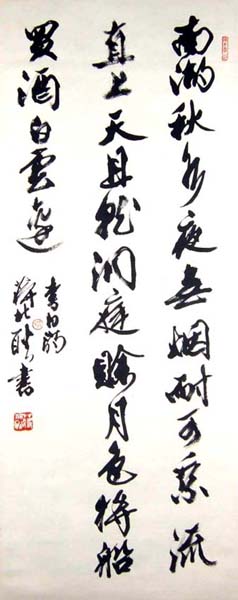 南湖秋水夜無烟耐可乘流
直上天且就洞庭賒月色將船
買酒白雲邊
李白詩
蔣北耿書